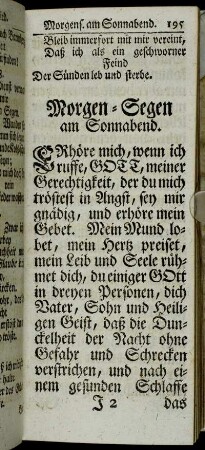 Morgens. am Sonnabend. 195
Bleib immerfort mit mir vereint,
Daß ich als ein geschworner
Feind
Der Sünden leb und sterbe.
Morgen-Segen
am Sonnabend.
ERhöre mich, wenn ich
ruffe, GOTT, meiner
Gerechtigkeit, der du mich
tröstest in Angst, sey mir
gnädig, und erhöre mein
Gebet. Mein Mund lo-
bet, mein Hertz preiset,
mein Leib und Seele rüh-
met dich, du einiger GOtt
in dreyen Personen, dich
Vater, Sohn und Heili-
gen Geist, daß die Dun-
ckelheit der Nacht ohne
Gefahr und Schrecken
verstrichen, und nach ei-
nem gesunden Schlaffe
J 2 das